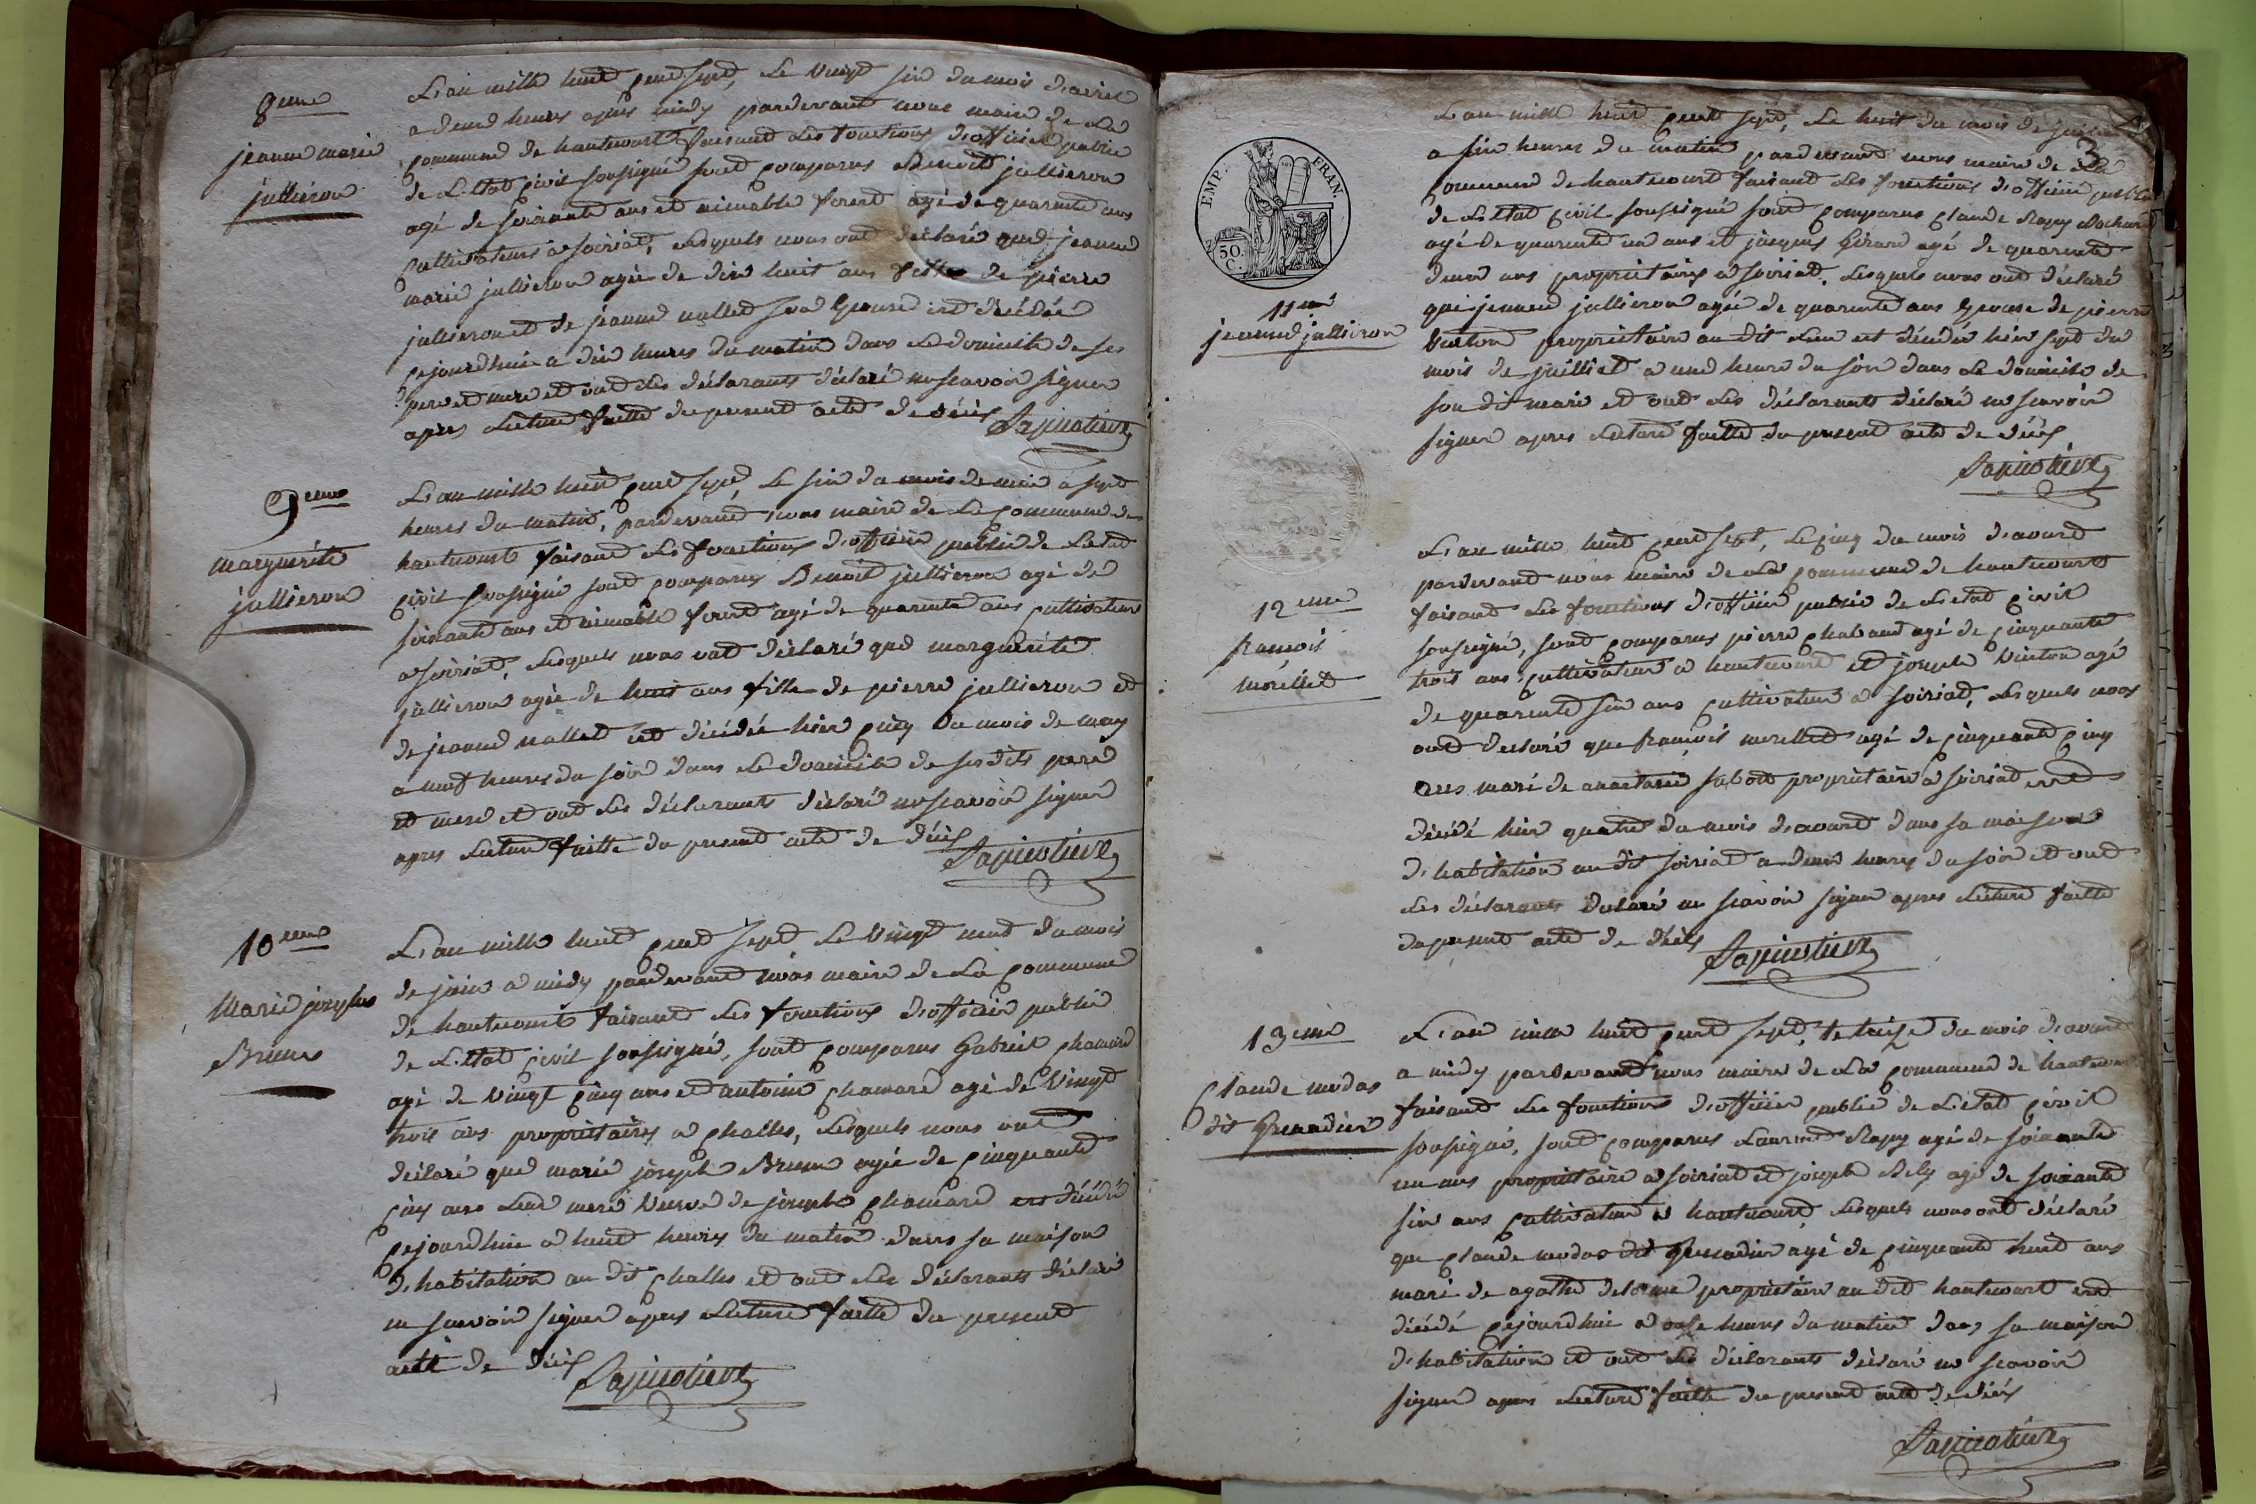 8eme
jeanne marie
jullieron
L'an mille huit cent sept, Le vingt six du mois d'avril
a deux heures apres midy pardevant nous maire de La
commune de hautecourt faisant Les fonctions d'officier public
de L'Etat civil soussigné sont comparus Benoit jullieron
agé de soixante ans et aimable ferent agé de quarante ans
cultivateurs a soiriat, Lesquels nous ont déclaré que jeanne
marie jullieron agée de dix huit ans fille de pierre
jullieron et de jeanne nallet son Epouse est décédée
cejourdhuie a dix heures du matin dans Le domicile de ses
pere et mere et ont Les déclarants déclaré ne scavoir signer
apres Lecture faitte du present acte de décès
9eme
marguerite
jullieron
L'an mille huit cent sept, Le six du mois de mai a sept
heures du matin, pardevant nous maire de La commune de
hautecourt faisant Les fonctions d'officier public de L'etat
civil soussigné sont comparus Benoit jullieron agé de
soixante ans et aimable ferent agé de quarante ans cultivateurs
a soiriat, Lesquels nous ont déclaré que marguerite
jullieron agée de huit ans fille de pierre jullieron et
de jeanne nallet est décédée hier cinq du mois de may
a neuf heures du soir dans Le domicile de ses dits pere
et mere et ont Les déclarants déclaré ne scavoir signer
apres Lecture faitte du present acte de décès
10eme
Marie josephe
Brun
L'an mille huit cent sept Le vingt neuf du mois
de juin a midy pardevant nous maire de La commune
de hautecourt faisant Les fonctions d'officier public
de L'Etat civil soussigné, sont comparus Gabriel chanard
agé de vingt cinq ans et antoine chanard agé de vingt
trois ans propriétaires a challes, Lesquels nous ont
déclaré que marie joseph Brun agée de cinquante
cinq ans Leur mere veuve de joseph chanard est décédée
cejourdhuie a huit heures du matin dans sa maison
d'habitation au dit challes et ont Les déclarants déclaré
ne scavoir signer apres Lecture faitte du present
acte de décès
3
EMP. FRAN.
50.
C.
11eme
jeanne jullieron
L'an mille huit cent sept, Le huit du mois de juillet
a six heures du matin pardevant nous maire de La
commune de hautecourt faisant Les fonctions d'officier public
de L'Etat civil soussigné sont comparus claude
agé de quarante un ans et jacques Girard agé de quarante
deux ans propriétaires a soiriat. Lesquels nous ont déclaré
que jeanne jullieron agée de quarante ans Epouse de pierre
propriétaire au dit Lieu est décédée hier sept du
mois de juilliet a une heure du soir dans Le domicile de
son dit mari et ont Les déclarants déclaré ne scavoir
signer apres Lecture faitte du present acte de décès
12eme
francois
morellet
L'an mille huit cent sept, Le cinq du mois d'avout
pardevant nous maire de La commune de hautecourt
faisant Les fonctions d'officier public de L'etat civil
soussigné, sont comparus pierre chaband agé de cinquante
trois ans cultivateur a hautecourt et joseph agé
de quarante six ans cultivateur a soiriat, Lesquels nous
ont declaré que francois morellet agé de cinquante cinq
ans mari de propriétaire a soiriat est
décédé hier quatre du mois d'avout dans sa maison
d'habitation au dit soiriat a deux heures du soir et ont
Les déclarants déclaré ne scavoir signer apres Lecture faitte
du present acte de décès
13eme
claude modas
dit Grenadier
L'an mille huit cent sept, Le treize du mois d'avout
a midy pardevant nous maire de La commune de hautecourt
faisant Les fonctions d'officier public de L'etat civil
soussigné, sont comparus Laurent agé de soixante
un ans propriétaire a soiriat et joseph Bely agé de soixante
six ans cultivateur a hautecourt, Lesquels nous ont déclaré
que claude modas dit Grenadier agé de cinquante huit ans
mari de agathe delorme propriétaire au dit hautecourt est
décédé cejourdhuie a onze heures du matin dans sa maison
d'habitation et ont Les déclarants déclaré ne scavoir
signer apres Lecture faitte du present acte de décès